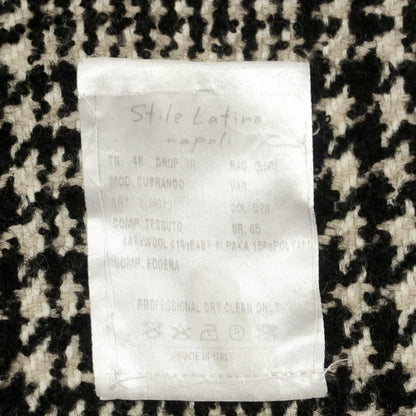 Stile Latino
napoli
TG 48 DROP 7R
MOD. CUBRANDO VAR
ART COL 028
COMP. TESSUTO SR. 65
44%WOOL 41%BABY ALPAKA 15%POLYAM
COMP. FODERA
PROFESSIONAL DRY CLEAN ONLY
MADE IN ITALY